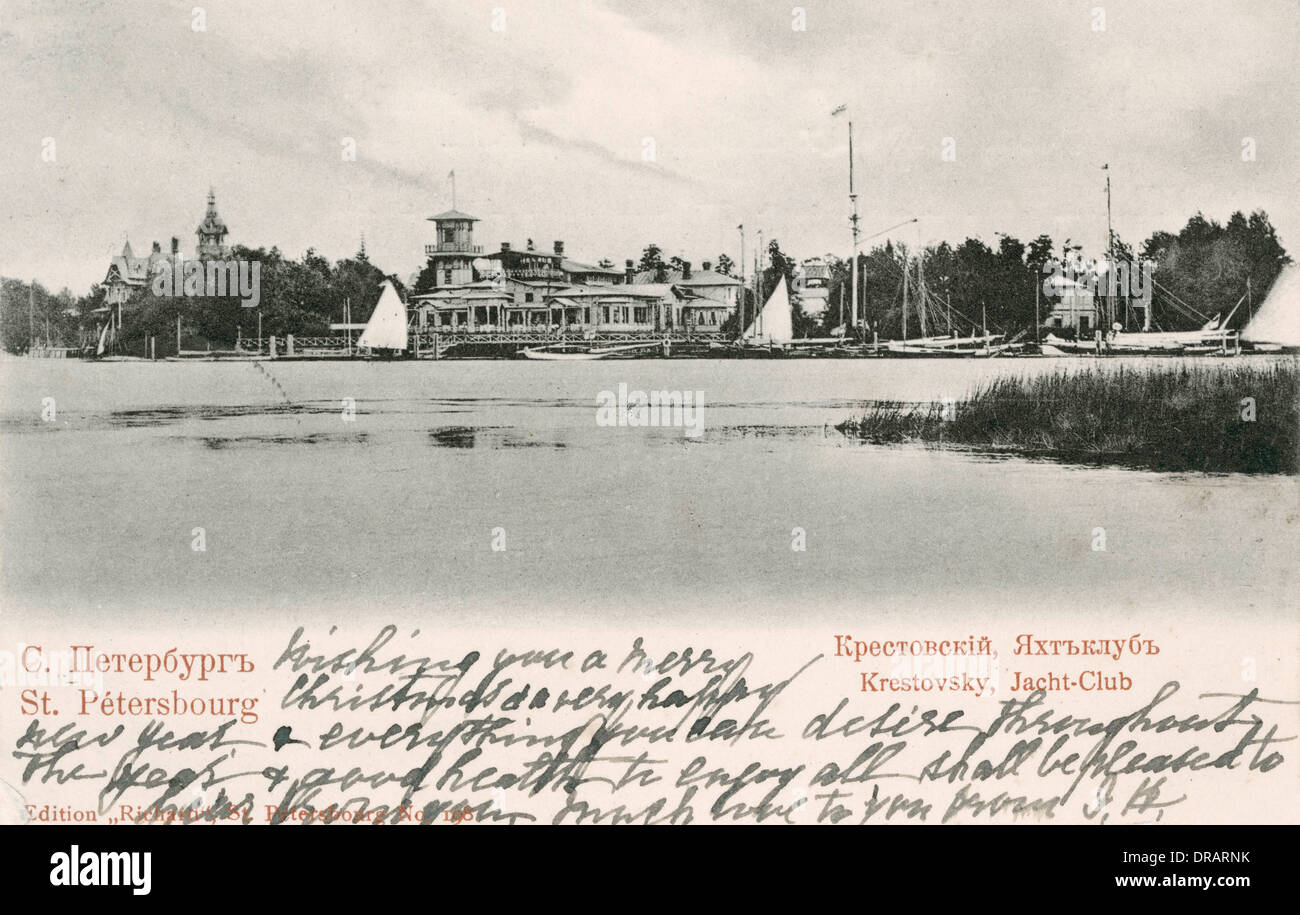 С. Петербургъ
St. Pétersbourg
Крестовскій, Яхтъклубъ
Krestovsky, Jacht-Club
Wishing you a merry
Christmas & a very happy
new year & everything you can desire throughout
the year & good health to enjoy all shall be pleased to
hear from you much love to you from
Edition „Richard", St. Pétersbourg No 198
alamy
Image ID: DRARNK
www.alamy.com